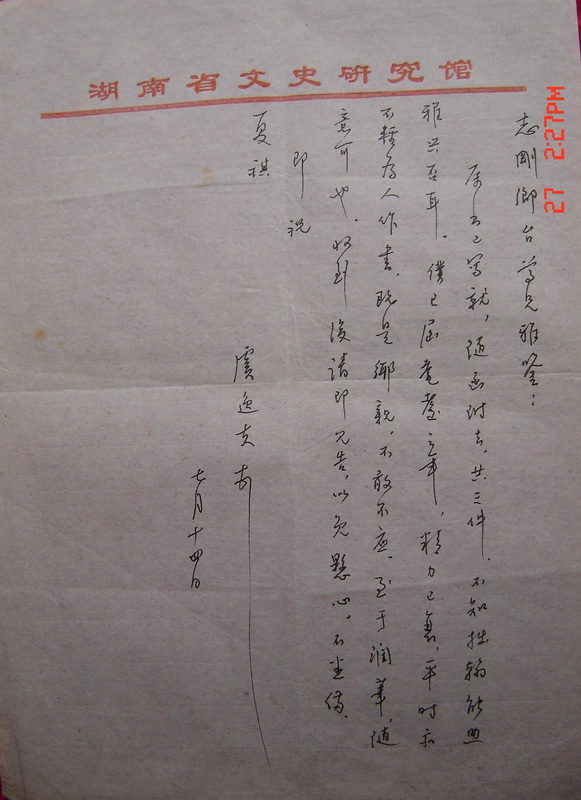 湖南省文史研究馆
志刚乡台尊兄雅鉴：
属书已写就，随函附去，共三件。不知拙翰能照
雅兴否耳。仆已届耄耋之年，精力已衰，平时亦
不轻为人作书，既是乡亲，不敢不应。至于润笔，随
意可也。收到后请即见告，以免悬心。不尽偹。
即祝
夏祺
虞逸夫
七月十四日
27 2:27PM